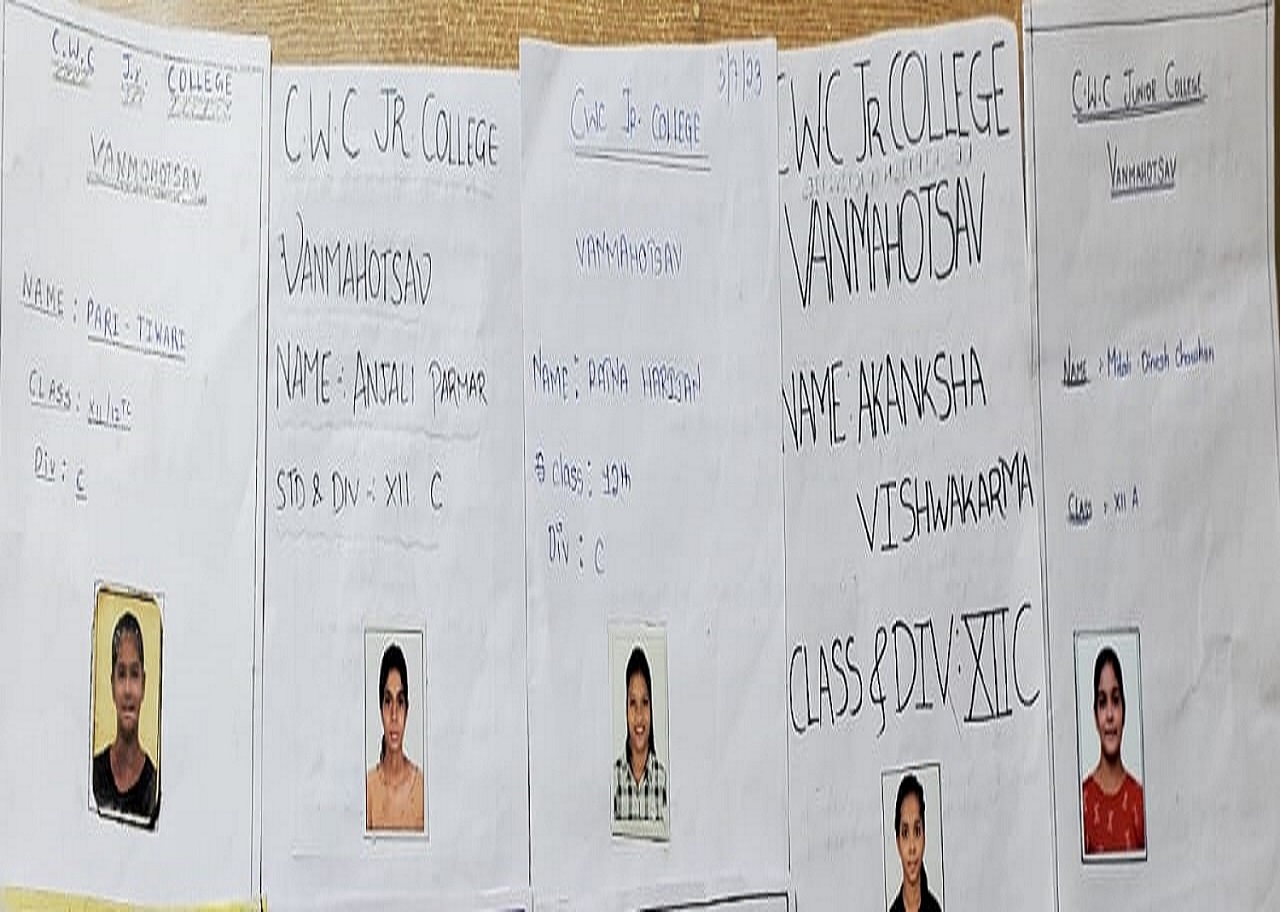 C.W.C Jr. COLLEGE
VANMOHOTSAV
NAME : PARI - TIWARI
CLASS : XII/12th
Div : C
C.W.C JR. COLLEGE
VANMAHOTSAV
NAME : ANJALI PARMAR
STD & DIV :- XII C
3/7/23
CWC Jr. COLLEGE
VANMAHOTSAV
NAME : RATNA HARIJAN
class : 12th
Div : C
CWC JR COLLEGE
VANMAHOTSAV
NAME : AKANKSHA
VISHWAKARMA
CLASS & DIV : XII C
C.W.C JUNIOR COLLEGE
VANMAHOTSAV
NAME : Dinesh Chouhan
CLASS : XII A